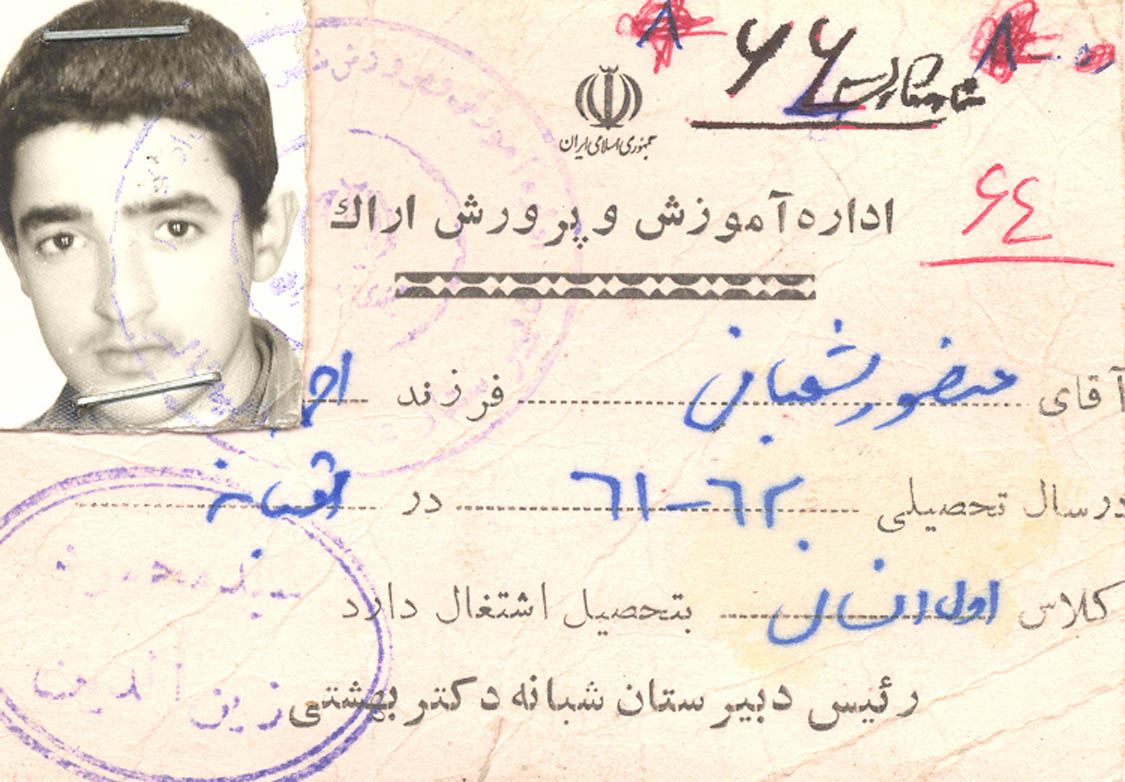 ۶۶
جمهوری اسلامی ایران
اداره آموزش و پرورش اراک
۶۴
آقای منصور شعبانی فرزند
در سال تحصیلی ۶۲-۶۱ در
کلاس اول انسانی بتحصیل اشتغال دارد
رئیس دبیرستان شبانه دکتر بهشتی
سید محمود
زین الدین